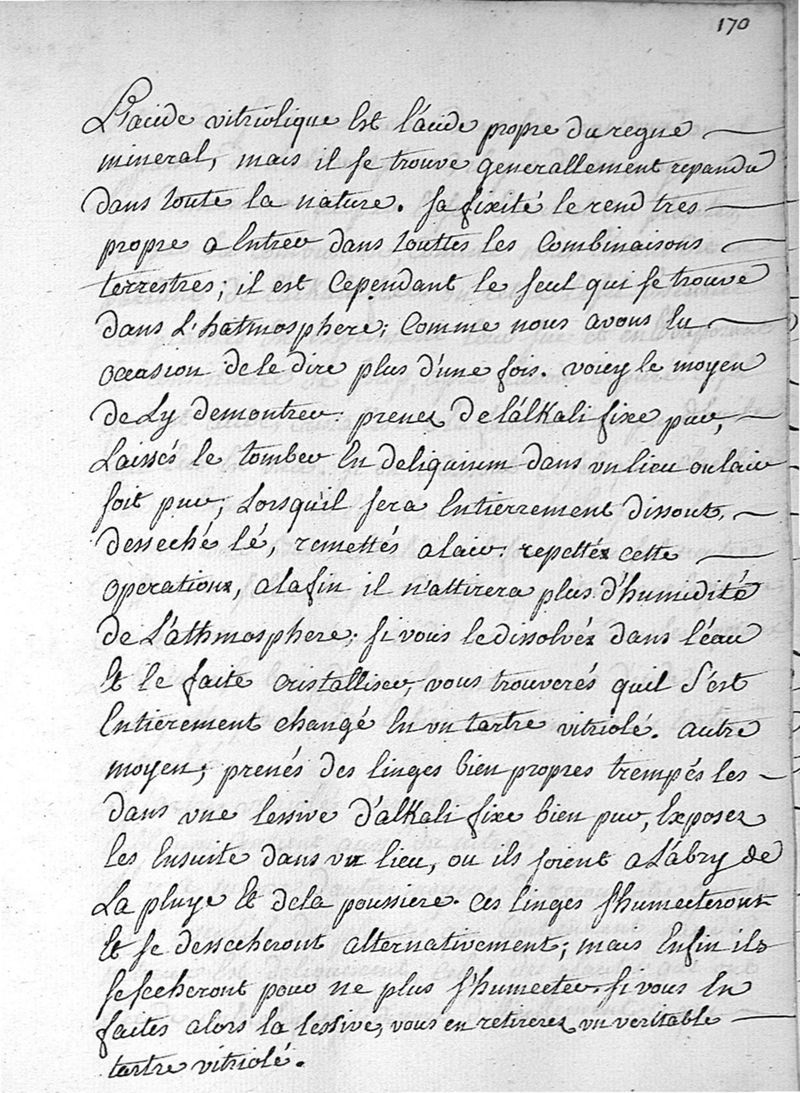 170
L'acide vitriolique Est l'acide propre du regne
mineral, mais il se trouve generallement repandu
dans toute la nature. sa fixité le rend tres
propre a Entrer dans touttes les Combinaisons
terrestres; il est Cependant le seul qui se trouve
dans L'hatmosphere; Comme nous avons Eu
occasion de le dire plus d'une fois. voicy le moyen
de Ly demontrer. prenez de l'alkali fixe pur,
Laissés le tomber En deliquium dans un lieu ou lair
soit pur; Lorsqu'il sera Entierrement dissout,
desseché lé, remettés a lair. repettéz cette
operationz, a la fin il n'attirera plus d'humidité
de L'athmosphere; si vous le dissolvéz dans l'éau
Et le faite cristalliser, vous trouverés quil s'est
Entierement changé En un tartre vitriolé. autre
moyen; prenés des linges bien propres trempés les
dans une lessive d'alkali fixe bien pur, Exposez
les Ensuite dans un lieu, ou ils soient a L'abry de
La pluye Et de la poussiere. Ces linges s'humecteront
Et se dessecheront alternativement; mais Enfin ils
se secheront pour ne plus s'humecter. si vous En
faites alors la lessive, vous en retirerez un veritable
tartre vitriolé.